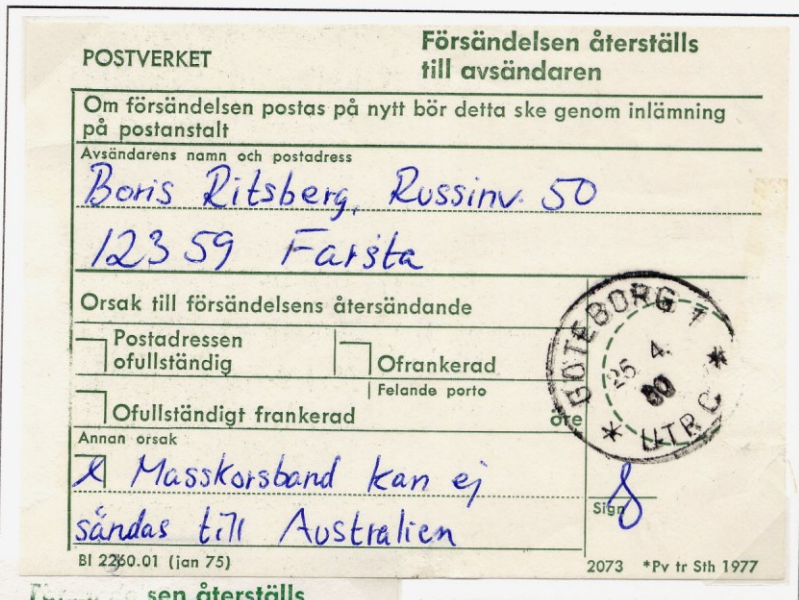 POSTVERKET
Försändelsen återställs
till avsändaren
Om försändelsen postas på nytt bör detta ske genom inlämning
på postanstalt
Avsändarens namn och postadress
Boris Ritsberg, Russinv. 50
123 59 Farsta
Orsak till försändelsens återsändande
Postadressen
ofullständig
Ofrankerad
Felande porto
Ofullständigt frankerad
öre
GÖTEBORG 1
25 4.
* UTR C *
Annan orsak
x Masskorsband kan ej
sändas till Australien
Sign
Bl 2260.01 (jan 75)
2073 *Pv tr Sth 1977
sen återställs